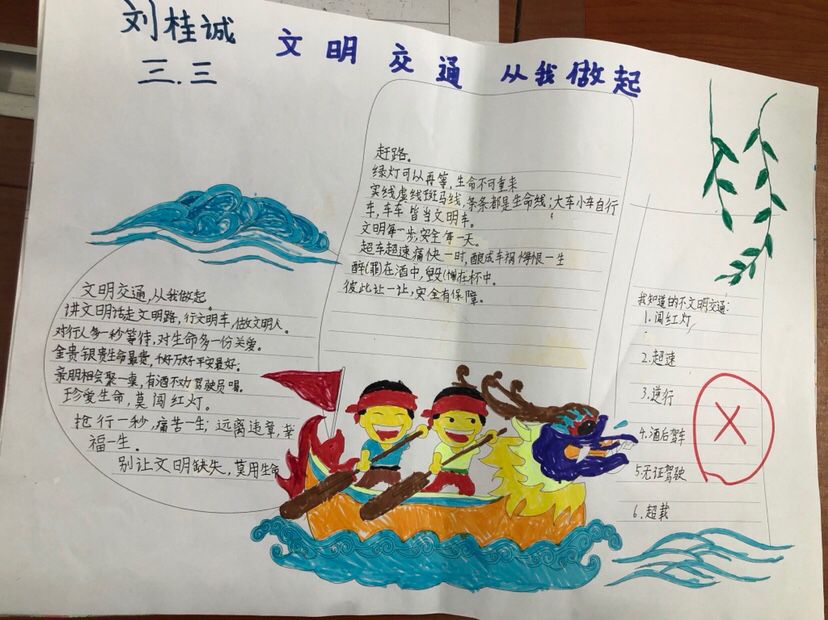 刘桂诚
三.三
文明交通 从我做起
文明交通,从我做起。
讲文明话走文明路,行文明车,做文明人。
对行人多一秒等待,对生命多一份关爱。
金贵银贵生命最贵,千好万好平安最好。
亲朋相会聚一桌,有酒不劝驾驶员喝。
珍爱生命,莫闯红灯。
抢行一秒,痛苦一生;远离违章,幸
福一生。
别让文明缺失,莫用生命
赶路。
绿灯可以再等,生命不可重来
实线虚线斑马线,条条都是生命线;大车小车自行
车,车车皆当文明车。
文明第一步,安全第一天。
超车超速痛快一时,酿成车祸悔恨一生
醉(罪)在酒中,毁(悔)在杯中。
彼此让一让,安全有保障。
我知道的不文明交通:
1.闯红灯
2.超速
3.逆行
4.酒后驾车
5.无证驾驶
6.超载